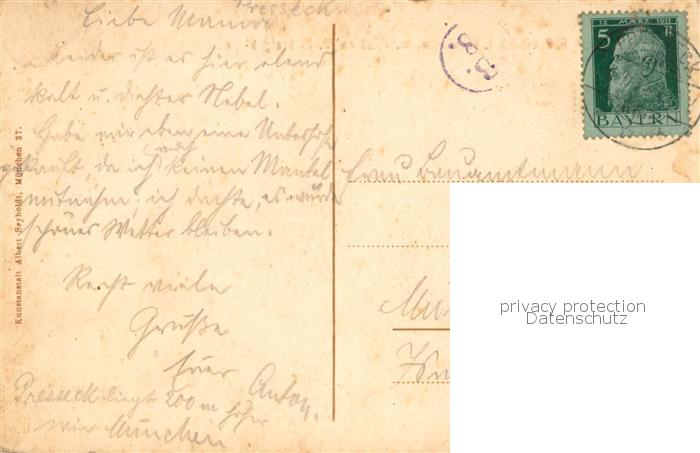 Presseck
Liebe Mama!
Leider ist es hier elend
kalt u. dichter Nebel.
Habe mir eben eine Unterhose
gekauft, da ich auch keinen Mantel
mitnahm; ich dachte, es würde
schönes Wetter bleiben.
Recht viele
Grüße
Euer Anton.
Presseck liegt 200 m höher
wie München.
Kunstanstalt Albert Seyboldt, München 27.
B. 8.
12 MÄRZ 1911
5 Pf
BAYERN
Frau Bauamtmann
privacy protection
Datenschutz